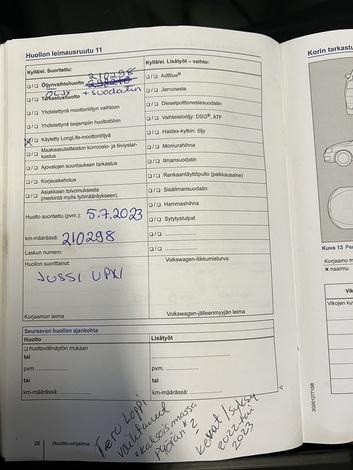 Huollon leimausruutu 11
Kyllä/ei. Suoritettu:
210298
☐/☐ Öljynvaihtohuolto
ÖLJY + suodatin
☐/☐ Tarkastushuolto
☐/☐ Yhdistettynä moottoriöljyn vaihtoon
☐/☐ Yhdistettynä laajempiin huoltotöihin
X/☐ Käytetty LongLife-moottoriöljyä
☐/☐ Maakaasulaitteiston korroosio- ja tiiviystar-
kastus
☐/☐ Ajovalojen suuntauksen tarkastus
☐/☐ Korjauskehotus
☐/☐ Asiakkaan toivomuksesta
(merkintä myös työmääräykseen)
Huolto suoritettu (pvm.): 5.7.2023
km-määrässä: 210298
Laskun numero:
Huollon suorittanut:
JUSSI
Korjaamon leima
Kyllä/ei. Lisätyöt – vaihto:
☐/☐ AdBlue®
☐/☐ Jarruneste
☐/☐ Dieselpolttonestesuodatin
☐/☐ Vaihteistoöljy: DSG®, ATF
☐/☐ Haldex-kytkin: öljy
☐/☐ Moniurahihna
☐/☐ Ilmansuodatin
☐/☐ Renkaantäyttöpullo (paikkausaine)
☐/☐ Sisäilmansuodatin
☐/☐ Hammashihna
☐/☐ Sytytystulpat
☐/☐
☐/☐
Volkswagen-liikkumisturva:
Volkswagen-jälleenmyyjän leima
Seuraavan huollon ajankohta
Huolto
☐ huoltovälinäytön mukaan
tai
pvm.
tai
km-määrässä:
Lisätyöt
tai
pvm.
tai
km-määrässä:
Tero Leppi
vaihtanut
takaisinmassa
pyörän 2
kevät / syksy
2022 tai
2023
26 Huolto-ohjelma
3G0012771SB
Korin tarkastu
Kuva 13 Pe
Korjaamo m
✕ naarmu
Vik
Vikojen ku